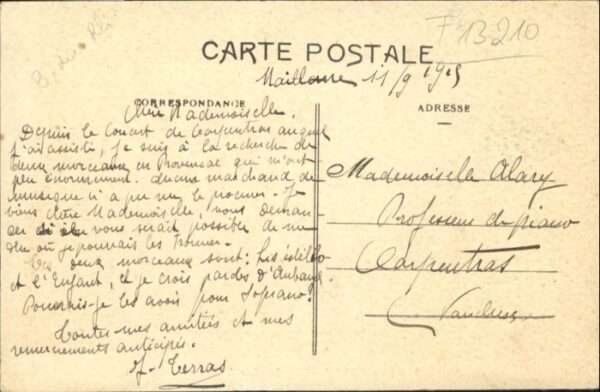 F 13210
CARTE POSTALE
11/9 1915
CORRESPONDANCE
ADRESSE
Chère Mademoiselle,
Depuis le Concert de Carpentras auquel
j'ai assisté, je suis à la recherche de
deux morceaux en Provençal qui m'ont
plu énormément. Aucun marchand de
musique n'a pu me le procurer. Je
viens chère Mademoiselle, vous deman-
der si il vous serait possible de me
dire où je pourrais les trouver.
Les deux morceaux sont : Les
et l'Enfant, et je crois paroles d'Aubanel
Pourrais-je les avoir pour Soprano ?
Toutes mes amitiés et mes
remerciements anticipés.
J. Terras
Mademoiselle Alary
Professeur de piano
Carpentras
Vaucluse